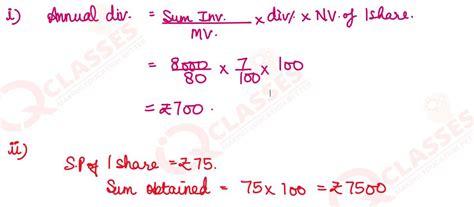 i) Annual div. = Sum Inv. / MV. × div% × NV. of 1 share.
= 8000/80 × 7/100 × 100
= ₹700.
ii)
S.P of 1 share = ₹75.
Sum obtained = 75 × 100 = ₹7500
QCLASSES
QCLASSES
QCLASSES